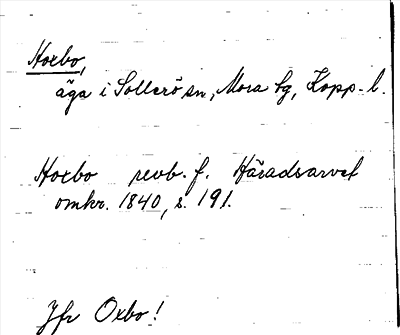 Hoxbo,
äga i Sollerö sn, Mora tg, Kopp. l.
Hoxbo revb. f. Häradsarvet
omkr. 1840, s. 191.
Jfr Oxbo!